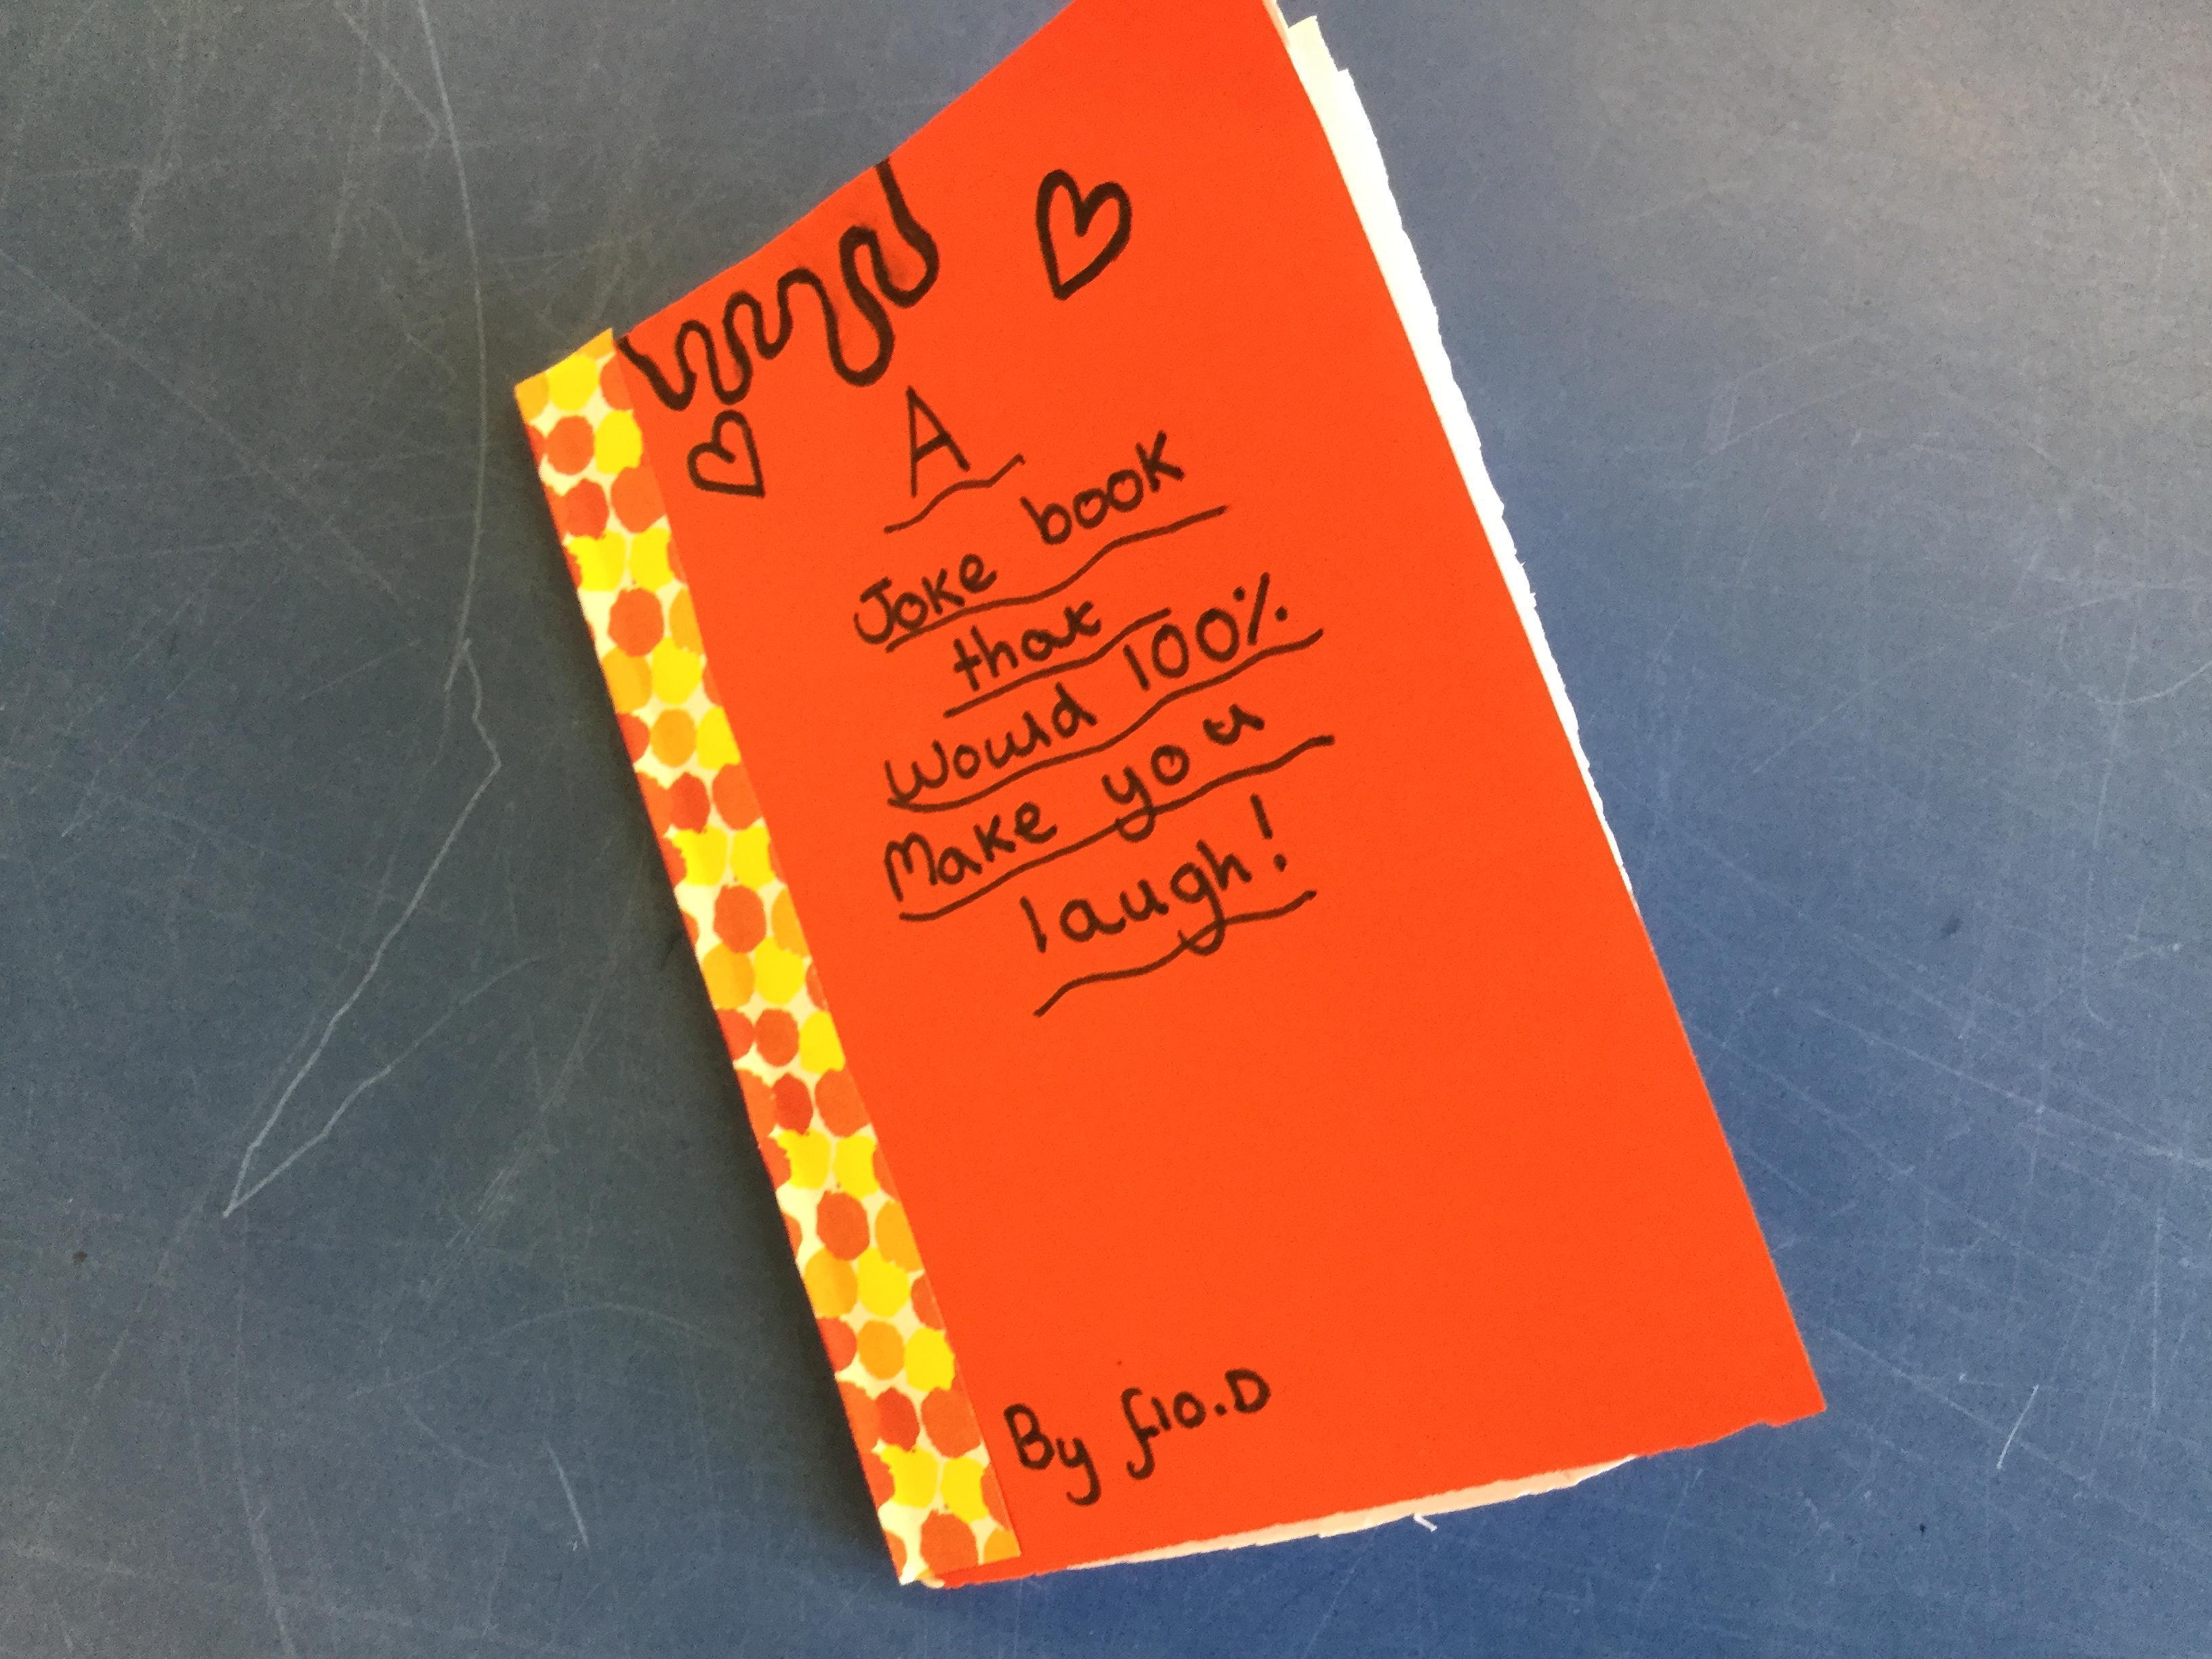 A
Joke book
that
Would 100%
Make you
laugh!
By flo.D